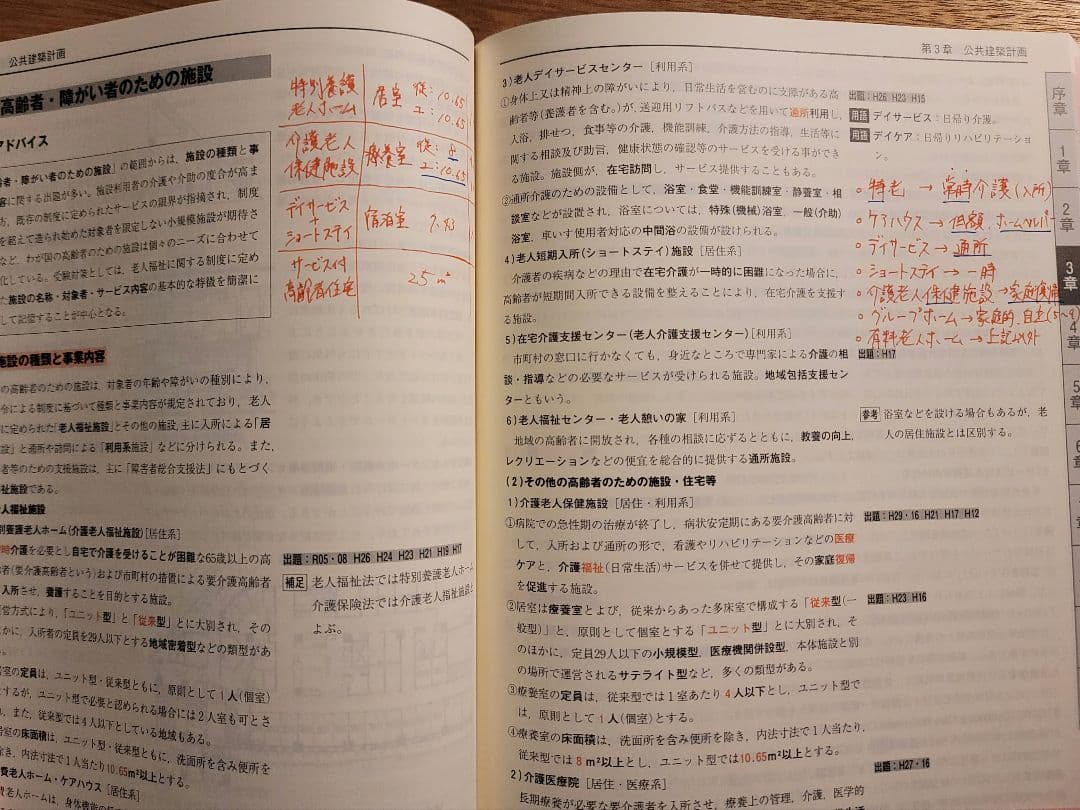 公共建築計画
高齢者・障がい者のための施設
アドバイス
者・障がい者のための施設」の範囲からは、施設の種類と事
容に関する出題が多い。施設利用者の介護や介助の度合が高ま
方、既存の制度に定められたサービスの限界が指摘され、制度
を超えて造られ始めた対象者を限定しない小規模施設が期待さ
など、わが国の高齢者のための施設は個々のニーズに合わせて
化している。受験対策としては、老人福祉に関する制度に定め
た施設の名称・対象者・サービス内容の基本的な特徴を簡潔に
して記憶することが中心となる。
施設の種類と事業内容
の高齢者のための施設は、対象者の年齢や障がいの種別により、
令による制度に基づいて種類と事業内容が規定されており、老人
に定められた「老人福祉施設」とその他の施設、主に入所による「居
設」と通所や訪問による「利用系施設」などに分けられる。また、
者等のための支援施設は、主に「障害者総合支援法」にもとづく
祉施設である。
人福祉施設
別養護老人ホーム(介護老人福祉施設)[居住系]
時介護を必要とし自宅で介護を受けることが困難な65歳以上の高
者(要介護高齢者という)および市町村の措置による要介護高齢者
入所させ、養護することを目的とする施設。
営方式により、「ユニット型」と「従来型」とに大別され、その
ほかに、入所者の定員を29人以下とする地域密着型などの類型があ
る。
居室の定員は、ユニット型・従来型ともに、原則として1人(個室)
とするが、ユニット型で必要と認められる場合には2人室も可とさ
れ、また、従来型では4人以下としている地域もある。
居室の床面積は、ユニット型・従来型ともに、洗面所を含み便所を
除き、内法寸法で1人当たり10.65m²以上とする。
費老人ホーム・ケアハウス[居住系]
特別養護老人ホーム 居室 従：10.65 ユ：10.65
介護老人保健施設 療養室 従：8 ユ：10.65
デイサービス+ショートステイ 宿泊室 7.43
サービス付高齢者住宅 25㎡
出題：R05・08 H26 H24 H23 H21 H19 H17
補足 老人福祉法では特別養護老人ホーム
介護保険法では介護老人福祉施設と
よぶ。
第3章 公共建築計画
3)老人デイサービスセンター[利用系]
①身体上又は精神上の障がいにより、日常生活を営むのに支障がある高
齢者等(養護者を含む。)が、送迎用リフトバスなどを用いて通所利用し、
入浴、排せつ、食事等の介護、機能訓練、介護方法の指導、生活等に
関する相談及び助言、健康状態の確認等のサービスを受ける事ができ
る施設。施設側が、在宅訪問し、サービス提供することもある。
②通所介護のための設備として、浴室・食堂・機能訓練室・静養室・相
談室などが設置され、浴室については、特殊(機械)浴室、一般(介助)
浴室、車いす使用者対応の中間浴の設備が設けられる。
4)老人短期入所(ショートステイ)施設[居住系]
介護者の疾病などの理由で在宅介護が一時的に困難になった場合に、
高齢者が短期間入所できる設備を整えることにより、在宅介護を支援す
る施設。
5)在宅介護支援センター(老人介護支援センター)[利用系]
市町村の窓口に行かなくても、身近なところで専門家による介護の相
談・指導などの必要なサービスが受けられる施設。地域包括支援セン
ターともいう。
6)老人福祉センター・老人憩いの家[利用系]
地域の高齢者に開放され、各種の相談に応ずるとともに、教養の向上、
レクリエーションなどの便宜を総合的に提供する通所施設。
(2)その他の高齢者のための施設・住宅等
1)介護老人保健施設[居住・利用系]
①病院での急性期の治療が終了し、病状安定期にある要介護高齢者に対
して、入所および通所の形で、看護やリハビリテーションなどの医療
ケアと、介護福祉(日常生活)サービスを併せて提供し、その家庭復帰
を促進する施設。
②居室は療養室とよび、従来からあった多床室で構成する「従来型(一
般型)」と、原則として個室とする「ユニット型」とに大別され、そ
のほかに、定員29人以下の小規模型、医療機関併設型、本体施設と別
の場所で運営されるサテライト型など、多くの類型がある。
③療養室の定員は、従来型では1室あたり4人以下とし、ユニット型で
は、原則として1人(個室)とする。
④療養室の床面積は、洗面所を含み便所を除き、内法寸法で1人当たり、
従来型では8m²以上とし、ユニット型では10.65m²以上とする。
2)介護医療院[居住・医療系]
長期療養が必要な要介護者を入所させ、療養上の管理、介護、医学的
出題：H26 H23 H15
用語 デイサービス：日帰り介護。
用語 デイケア：日帰りリハビリテーショ
ン。
○特老→常時介護(入所)
○ケアハウス→低額、ホームヘルパ
○デイサービス→通所
○ショートステイ→一時
○介護老人保健施設→家庭復帰
○グループホーム→家庭的、自立(5~9)
○有料老人ホーム→上記以外
出題：H17
参考 浴室などを設ける場合もあるが、老
人の居住施設とは区別する。
出題：H29・16 H21 H17 H12
出題：H23 H16
出題：H27・16
序章
1章
2章
3章
4章
5章
6章